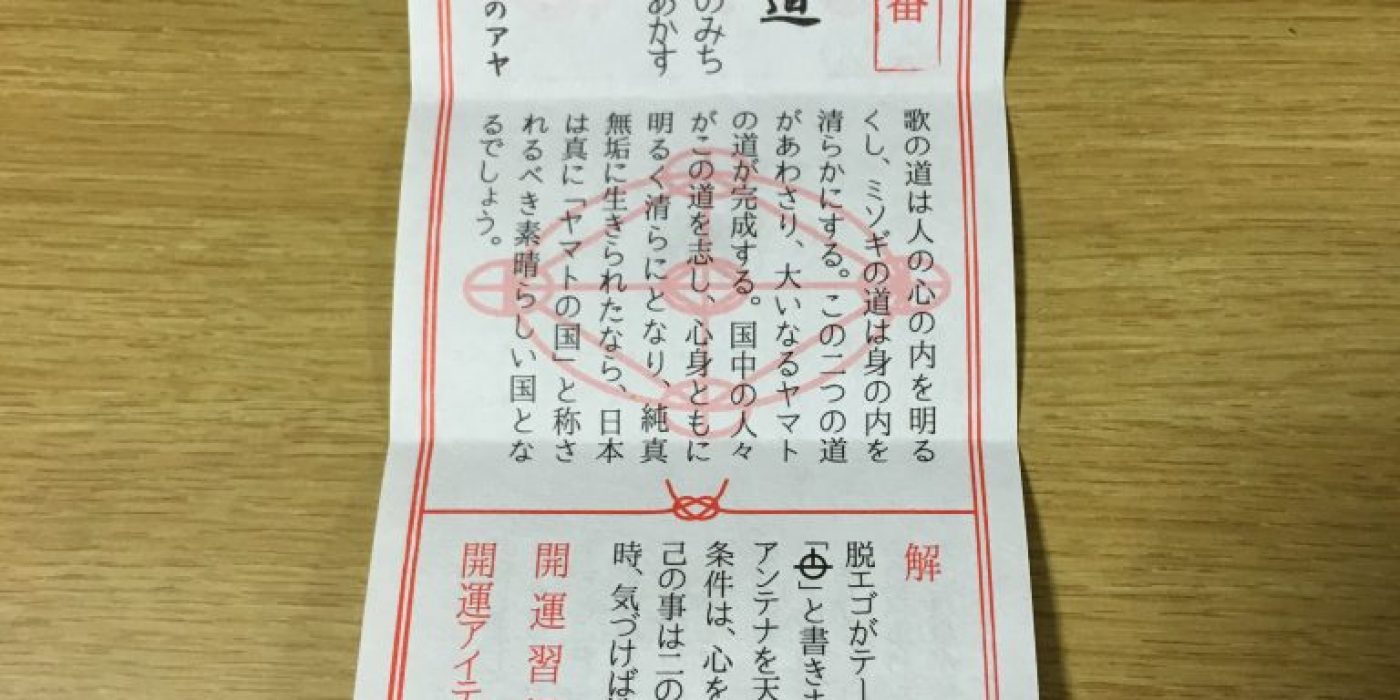 番
道
のみち
あかす
のアヤ
歌の道は人の心の内を明る
くし、ミソギの道は身の内を
清らかにする。この二つの道
があわさり、大いなるヤマト
の道が完成する。国中の人々
がこの道を志し、心身ともに
明るく清らにとなり、純真
無垢に生きられたなら、日本
は真に「ヤマトの国」と称さ
れるべき素晴らしい国とな
るでしょう。
解
脱エゴがテー
「㊉」と書きま
アンテナを天
条件は、心を
己の事は二の
時、気づけば
開運習
開運アイテ